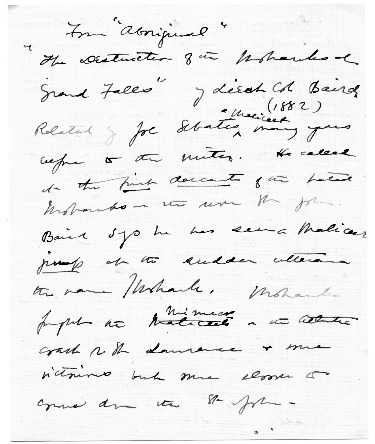 From "Aboriginal"
"The Destruction of the Mohawks at
Grand Falls" by Lieut Col Baird
(1882)
Related by Joe Sebatis, a Malicete many years
before to the writer. He called
it the first descent of the hated
Mohawks on the river St John.
Baird says he has seen a Malicete
jump at the sudden utterance
the name Mohawk. Mohawks
fought the Micmacs on the
coast & St Lawrence & were
victorious but were slower to
come down the St John -